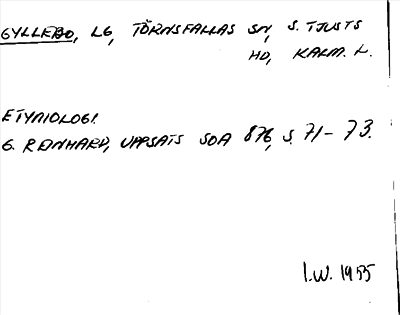 GYLLEBO, LG, TÖRNSFALLAS SN, S. TJUSTS
HD, KALM. L.
ETYMOLOGI.
G. REINHARD, UPPSATS SOA 876, S. 71-73.
I.W. 1955